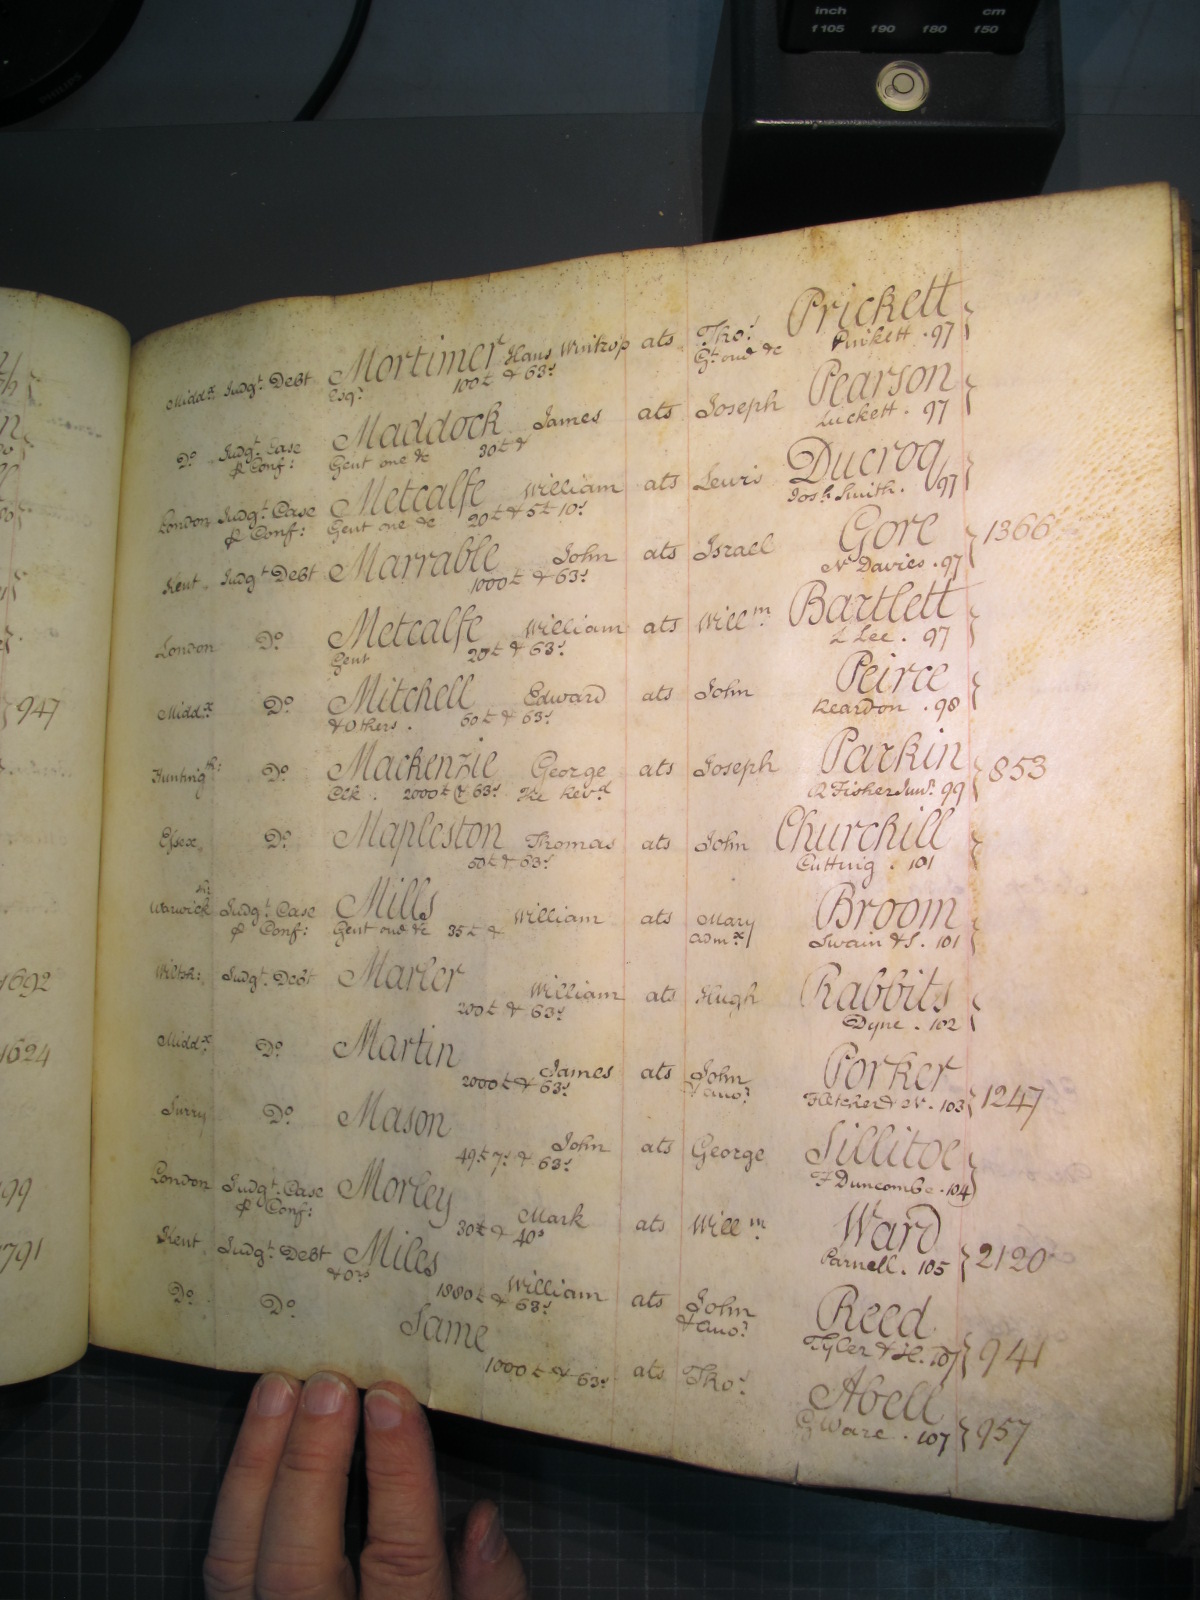 inch cm
f105 f90 f80 f50
PHILIPS
Midd.x Judg.t Debt Mortimer Hans Wintrop ats Tho.s Prickett
Esq.r 100£ & 63.s G.t one &c Pinkett . 97
D.o Judg.t Case Maddock James ats Joseph Pearson
& Conf: Gent one &c 30£ & Luckett . 97
London Judg.t Case Metcalfe William ats Lewis Ducroq
& Conf: Gent one &c 20£ & 5£ 10.s Jos.h Smith . 97
Kent Judg.t Debt Marrable John ats Israel Gore 1366
1000£ & 63.s N Davies . 97
London D.o Metcalfe William ats Will.m Bartlett
Gent 20£ & 63.s L Lee . 97
Midd.x D.o Mitchell Edward ats John Peirce
& Others . 60£ & 63.s Reardon . 98
Hunting.th: D.o Mackenzie George ats Joseph Parkin 853
Clk . 2000£ & 63.s The Rev.d R Fisher Jun.r 99
Essex D.o Mapleston Thomas ats John Churchill
50£ & 63.s Cutting . 101
Warwick Judg.t Case Mills William ats Mary Broom
& Conf: Gent one &c 35£ & adm.x Swain & S . 101
Wiltsh: Judg.t Debt Marler William ats Hugh Rabbits
200£ & 63.s Dyne . 102
Midd.x D.o Martin James ats John Porker 1247
2000£ & 63.s & ano.r Fletcher & W . 103
Surry D.o Mason John ats George Sillitoe
49£ 7.s & 63.s F Duncombe . 104
London Judg.t Case Morley Mark ats Will.m Ward 2120
& Conf: 30£ & 40.s Parnell . 105
Kent Judg.t Debt Miles William ats John Reed 941
& Ors 1880£ & 63.s & Ano.r Tyler & H . 107
D.o D.o Same ats Tho.s Abell 957
1000£ & 63.s G Ware . 107
947
1692
1624
99
791